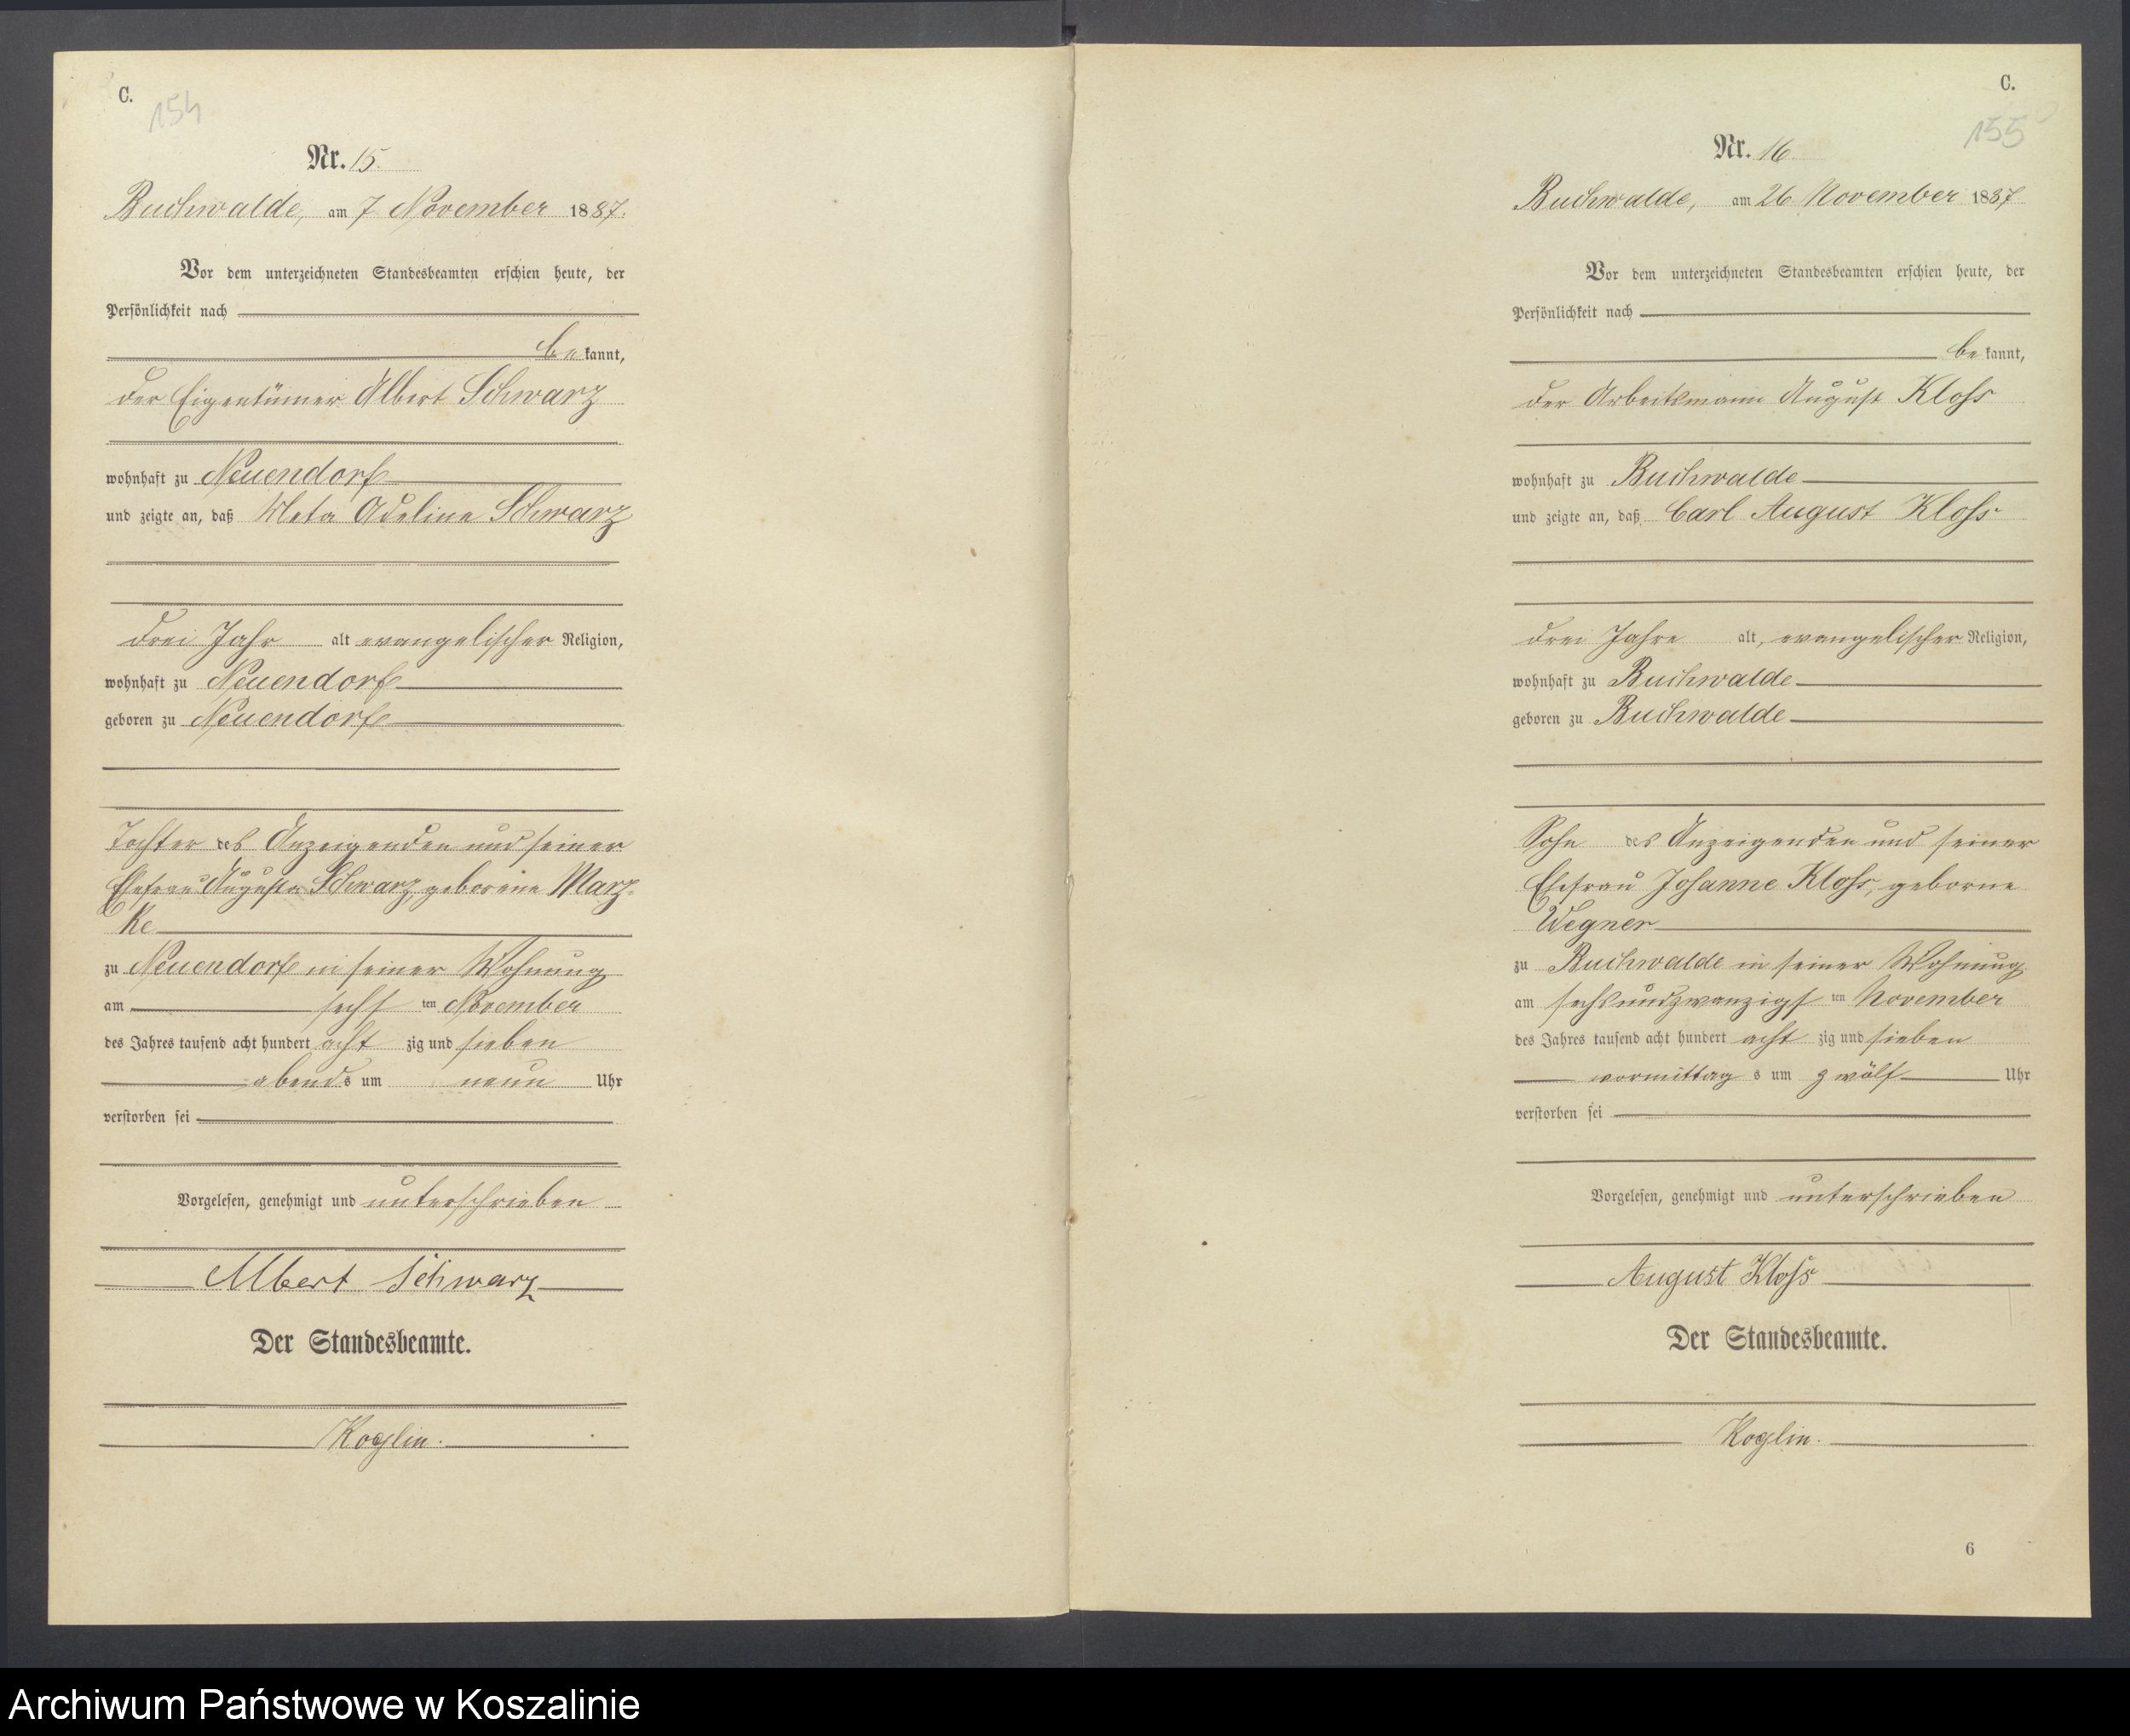 C.
154
Nr. 15.
Buchwalde, am 7 November 1887.
Vor dem unterzeichneten Standesbeamten erschien heute, der
Persönlichkeit nach
bekannt,
der Eigentümer Albert Schwarz
wohnhaft zu Neuendorf
und zeigte an, daß Meta Adeline Schwarz
drei Jahr alt evangelischer Religion,
wohnhaft zu Neuendorf
geboren zu Neuendorf
Tochter des Anzeigenden und seiner
Ehefrau Auguste Schwarz, geborene Marz-
ke
zu Neuendorf in seiner Wohnung
am sechsten November
des Jahres tausend acht hundert achtzig und sieben
abends um neun Uhr
verstorben sei
Vorgelesen, genehmigt und unterschrieben
Albert Schwarz
Der Standesbeamte.
Koglin.
C.
155
Nr. 16
Buchwalde, am 26 November 1887
Vor dem unterzeichneten Standesbeamten erschien heute, der
Persönlichkeit nach
bekannt,
der Arbeitsmann August Kloss
wohnhaft zu Buchwalde
und zeigte an, daß Carl August Kloss
drei Jahre alt, evangelischer Religion,
wohnhaft zu Buchwalde
geboren zu Buchwalde
Sohn des Anzeigenden und seiner
Ehefrau Johanne Kloss, geborne
Wegner
zu Buchwalde in seiner Wohnung
am sechsundzwanzigsten November
des Jahres tausend acht hundert achtzig und sieben
vormittags um zwölf Uhr
verstorben sei
Vorgelesen, genehmigt und unterschrieben
August Kloss
Der Standesbeamte.
Koglin.
6
Archiwum Państwowe w Koszalinie